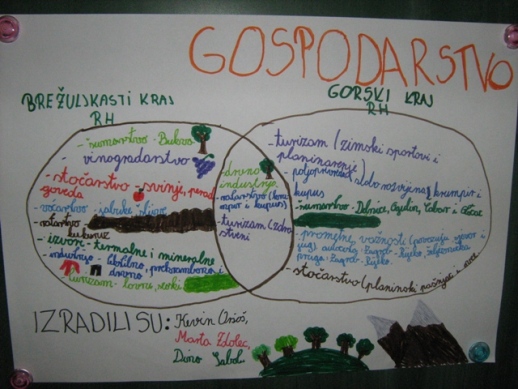 GOSPODARSTVO
BREŽULJKASTI KRAJ
RH
GORSKI KRAJ
RH
- šumarstvo - Bukova
- vinogradarstvo
- stočarstvo - svinje, perad
goveda
- voćarstvo - jabuke, šljive
- ratarstvo
kukuruz
- izvori - termalne i mineralne
- industrija - tekstilna, prehrambena i
drvena
turizam - lovni, seoski
- drvna
industrija
- ratarstvo (krumpir
i kupus)
- turizam (zdravstveni
- turizam (zimski sportovi i
planinarenje)
- poljoprivreda slabo razvijena, krumpir i
kupus
- šumarstvo - Delnice, Ogulin, i
- prometna važnost (povezuje sjever i
jug) Zagreb - Rijeka,
pruga - Zagreb - Rijeka
- stočarstvo (planinski pašnjaci - ovce
IZRADILI SU: Kevin
Marta Zdolec,
Dino Sabol